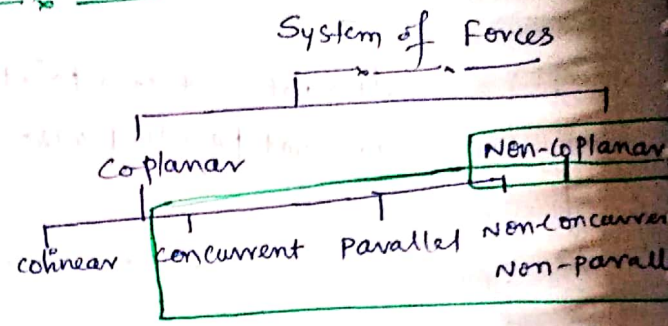 System of Forces
Coplanar
Non-Coplanar
Colinear
Concurrent
Parallel
Non-Concurren
Non-parall